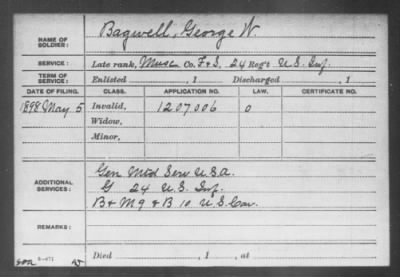 NAME OF SOLDIER: Bagwell, George W.
SERVICE: Late rank, Musc Co. F+S, 24 Reg't U.S. Inf.
TERM OF SERVICE: Enlisted , 1 Discharged , 1
DATE OF FILING. CLASS. APPLICATION NO. LAW. CERTIFICATE NO.
1898 May 5 Invalid, 1207.006 O
Widow,
Minor,
ADDITIONAL SERVICES: Gen Mtd Serv U.S.A.
G 24 U.S. Inf.
B+M 9 & B 10 U.S. Cav.
REMARKS:
Died , 1 , at
3—471